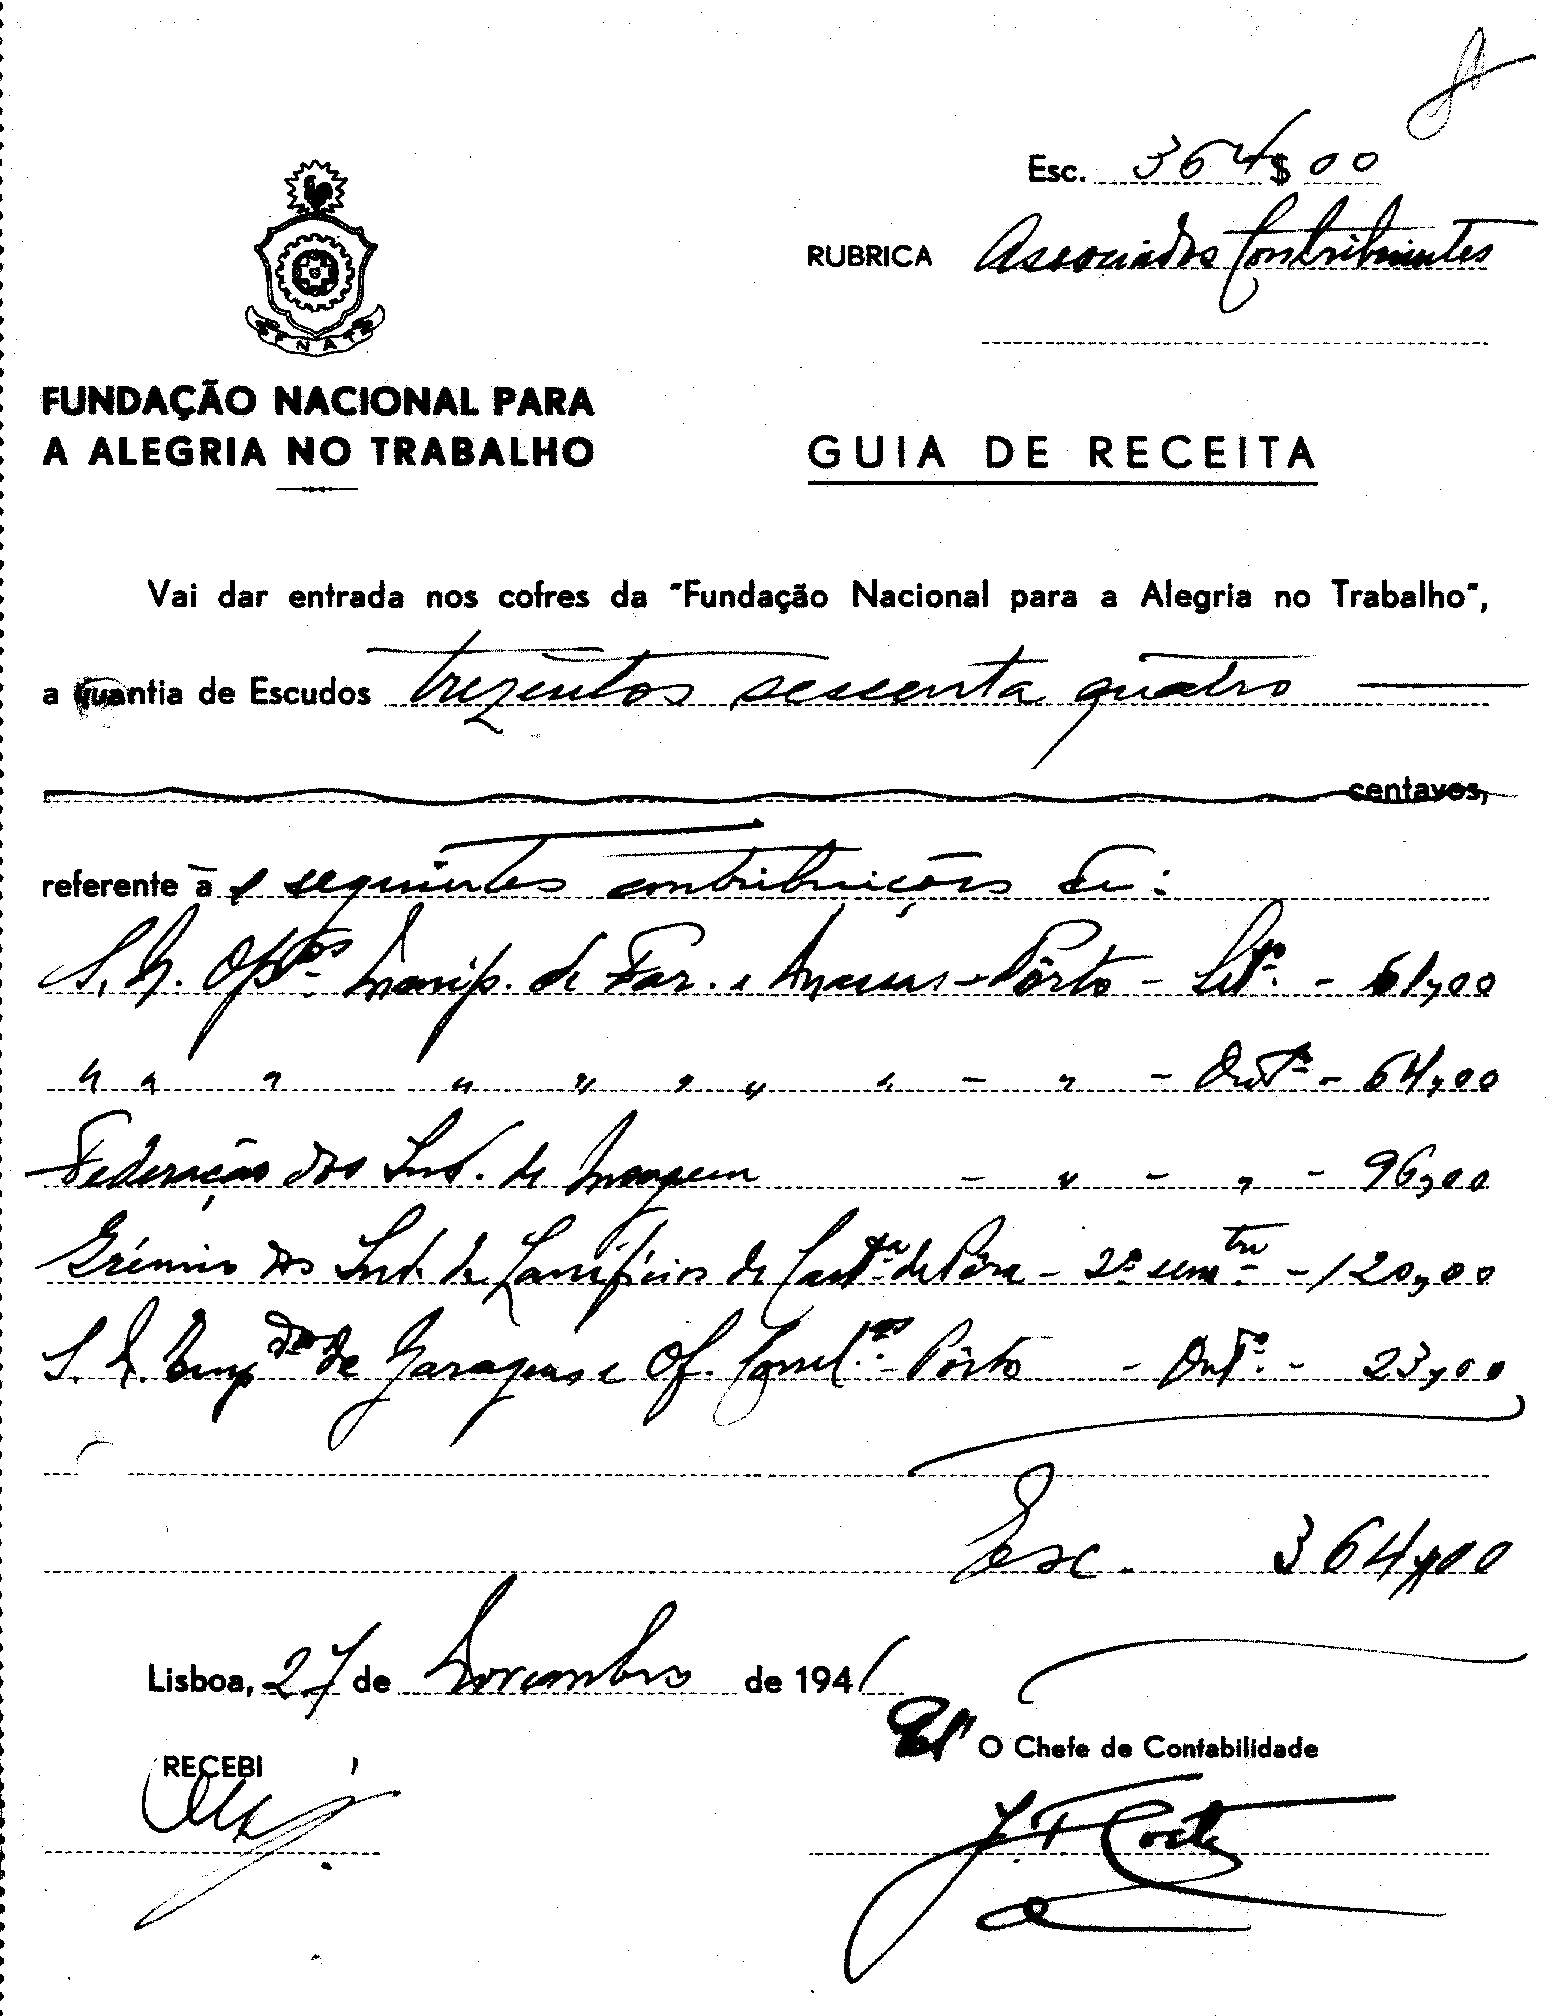 Esc. 364$00
RUBRICA Associados Contribuintes
FNAT
FUNDAÇÃO NACIONAL PARA
A ALEGRIA NO TRABALHO
GUIA DE RECEITA
Vai dar entrada nos cofres da "Fundação Nacional para a Alegria no Trabalho",
a quantia de Escudos trezentos sessenta quatro
centavos,
referente às seguintes contribuições de:
S. N. Opros Manip. de Far. e Massas - Pôrto - Setº. - 61,00
" " " " " " " " - " - Outº - 64,00
Federação dos Ind. de Moagem - " - " - 96,00
Grémio dos Ind. de Lanifícios de Castra de Pêra - 2º semtre - 120,00
S. N. Empdos de Garagens e Of. Comel.as - Pôrto - Outº. - 23,00
Esc. 364,00
Lisboa, 27 de Novembro de 1941
Pel' O Chefe de Contabilidade
RECEBI
J. F. Costa